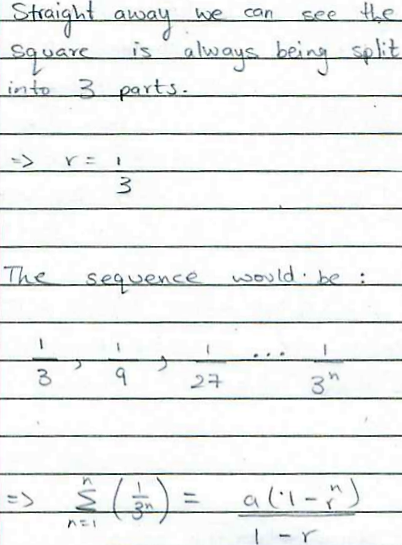 Straight away we can see the
square is always being split
into 3 parts.
=> r = 1/3
The sequence would be :
1/3 , 1/9 , 1/27 ... 1/3^n
=> n Σ n=1 (1/3^n) = a(1-r^n)/1-r